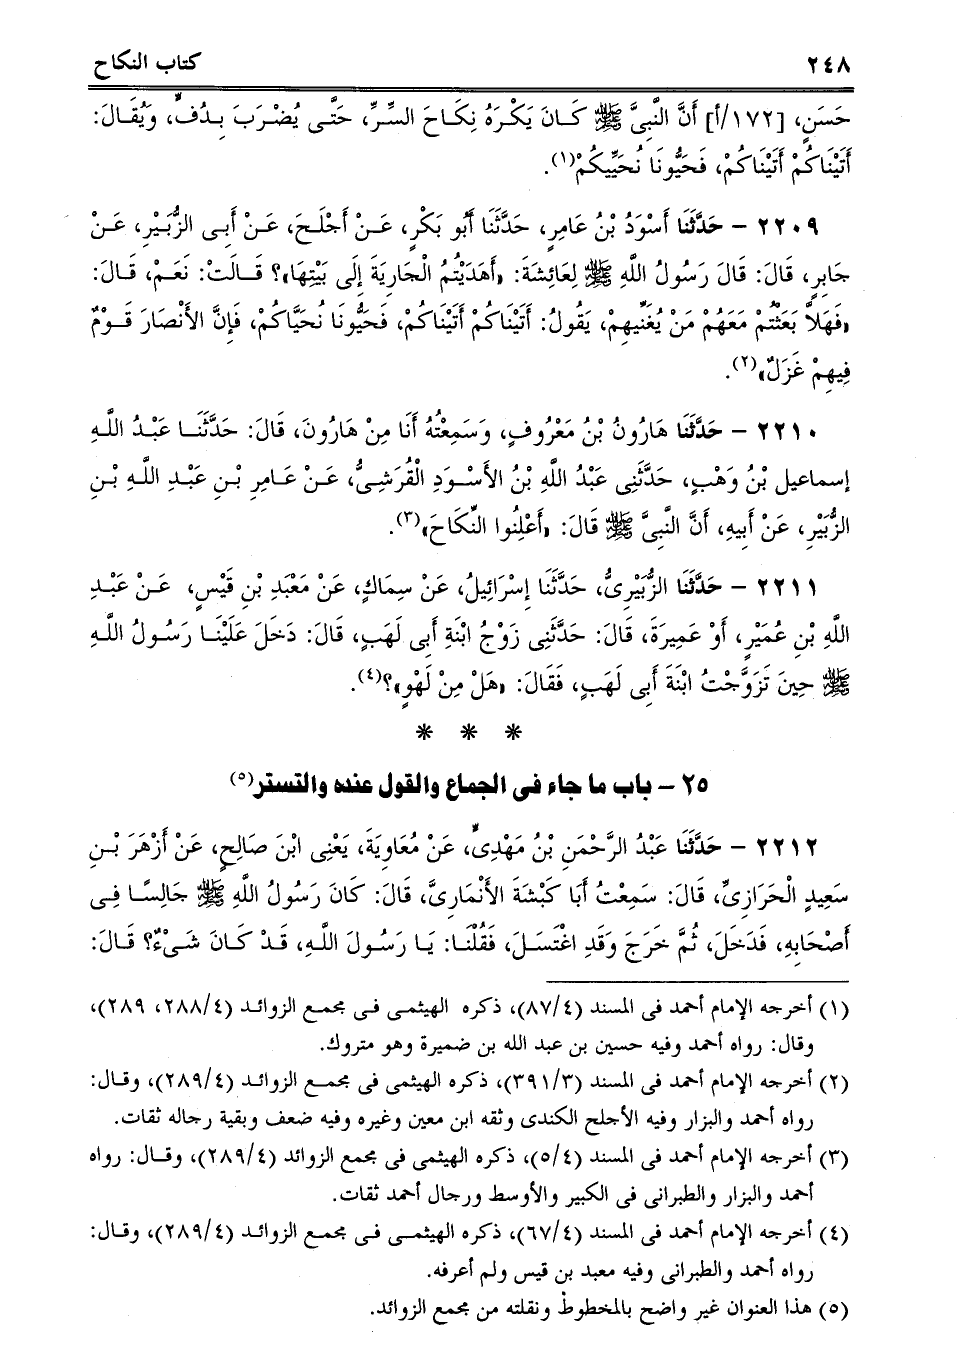 ٢٤٨ كتاب النكاح
حَسَنٍ، [١٧٢/أ] أَنَّ النَّبِىَّ ﷺ كَانَ يَكْرَهُ نِكَاحَ السِّرِّ، حَتَّى يُضْرَبَ بِدُفٍّ، وَيُقَالَ:
أَتَيْنَاكُمْ أَتَيْنَاكُمْ، فَحَيُّونَا نُحَيِّيكُمْ(١).
٢٢٠٩ - حَدَّثَنَا أَسْوَدُ بْنُ عَامِرٍ، حَدَّثَنَا أَبُو بَكْرٍ، عَنْ أَجْلَحَ، عَنْ أَبِى الزُّبَيْرِ، عَنْ
جَابِرٍ، قَالَ: قَالَ رَسُولُ اللَّهِ ﷺ لِعَائِشَةَ: «أَهَدَيْتُمُ الْجَارِيَةَ إِلَى بَيْتِهَا»؟ قَالَتْ: نَعَمْ، قَالَ:
«فَهَلاَّ بَعَثْتُمْ مَعَهُمْ مَنْ يُغَنِّيهِمْ، يَقُولُ: أَتَيْنَاكُمْ أَتَيْنَاكُمْ، فَحَيُّونَا نُحَيَّاكُمْ، فَإِنَّ الأَنْصَارَ قَوْمٌ
فِيهِمْ غَزَلٌ»(٢).
٢٢١٠ - حَدَّثَنَا هَارُونُ بْنُ مَعْرُوفٍ، وَسَمِعْتُهُ أَنَا مِنْ هَارُونَ، قَالَ: حَدَّثَنَا عَبْدُ اللَّهِ
إسماعيل بْنُ وَهْبٍ، حَدَّثَنِى عَبْدُ اللَّهِ بْنُ الأَسْوَدِ الْقُرَشِىُّ، عَنْ عَامِرِ بْنِ عَبْدِ اللَّهِ بْنِ
الزُّبَيْرِ، عَنْ أَبِيهِ، أَنَّ النَّبِىَّ ﷺ قَالَ: «أَعْلِنُوا النِّكَاحَ»(٣).
٢٢١١ - حَدَّثَنَا الزُّبَيْرِىُّ، حَدَّثَنَا إِسْرَائِيلُ، عَنْ سِمَاكٍ، عَنْ مَعْبَدِ بْنِ قَيْسٍ، عَنْ عَبْدِ
اللَّهِ بْنِ عُمَيْرٍ، أَوْ عَمِيرَةَ، قَالَ: حَدَّثَنِى زَوْجُ ابْنَةِ أَبِى لَهَبٍ، قَالَ: دَخَلَ عَلَيْنَا رَسُولُ اللَّهِ
ﷺ حِينَ تَزَوَّجْتُ ابْنَةَ أَبِى لَهَبٍ، فَقَالَ: «هَلْ مِنْ لَهْوٍ»؟(٤).
* * *
٢٥ - باب ما جاء فى الجماع والقول عنده والتستر(٥)
٢٢١٢ - حَدَّثَنَا عَبْدُ الرَّحْمَنِ بْنُ مَهْدِىٍّ، عَنْ مُعَاوِيَةَ، يَعْنِى ابْنَ صَالِحٍ، عَنْ أَزْهَرَ بْنِ
سَعِيدٍ الْحَرَازِىِّ، قَالَ: سَمِعْتُ أَبَا كَبْشَةَ الأَنْمَارِىَّ، قَالَ: كَانَ رَسُولُ اللَّهِ ﷺ جَالِسًا فِى
أَصْحَابِهِ، فَدَخَلَ، ثُمَّ خَرَجَ وَقَدِ اغْتَسَلَ، فَقُلْنَا: يَا رَسُولَ اللَّهِ، قَدْ كَانَ شَىْءٌ؟ قَالَ:
(١) أخرجه الإمام أحمد فى المسند (٨٧/٤)، ذكره الهيثمى فى مجمع الزوائد (٢٨٨/٤، ٢٨٩)،
وقال: رواه أحمد وفيه حسين بن عبد الله بن ضميرة وهو متروك.
(٢) أخرجه الإمام أحمد فى المسند (٣٩١/٣)، ذكره الهيثمى فى مجمع الزوائد (٢٨٩/٤)، وقال:
رواه أحمد والبزار وفيه الأجلح الكندى وثقه ابن معين وغيره وفيه ضعف وبقية رجاله ثقات.
(٣) أخرجه الإمام أحمد فى المسند (٥/٤)، ذكره الهيثمى فى مجمع الزوائد (٢٨٩/٤)، وقال: رواه
أحمد والبزار والطبرانى فى الكبير والأوسط ورجال أحمد ثقات.
(٤) أخرجه الإمام أحمد فى المسند (٦٧/٤)، ذكره الهيثمى فى مجمع الزوائد (٢٨٩/٤)، وقال:
رواه أحمد والطبرانى وفيه معبد بن قيس ولم أعرفه.
(٥) هذا العنوان غير واضح بالمخطوط ونقلته من مجمع الزوائد.